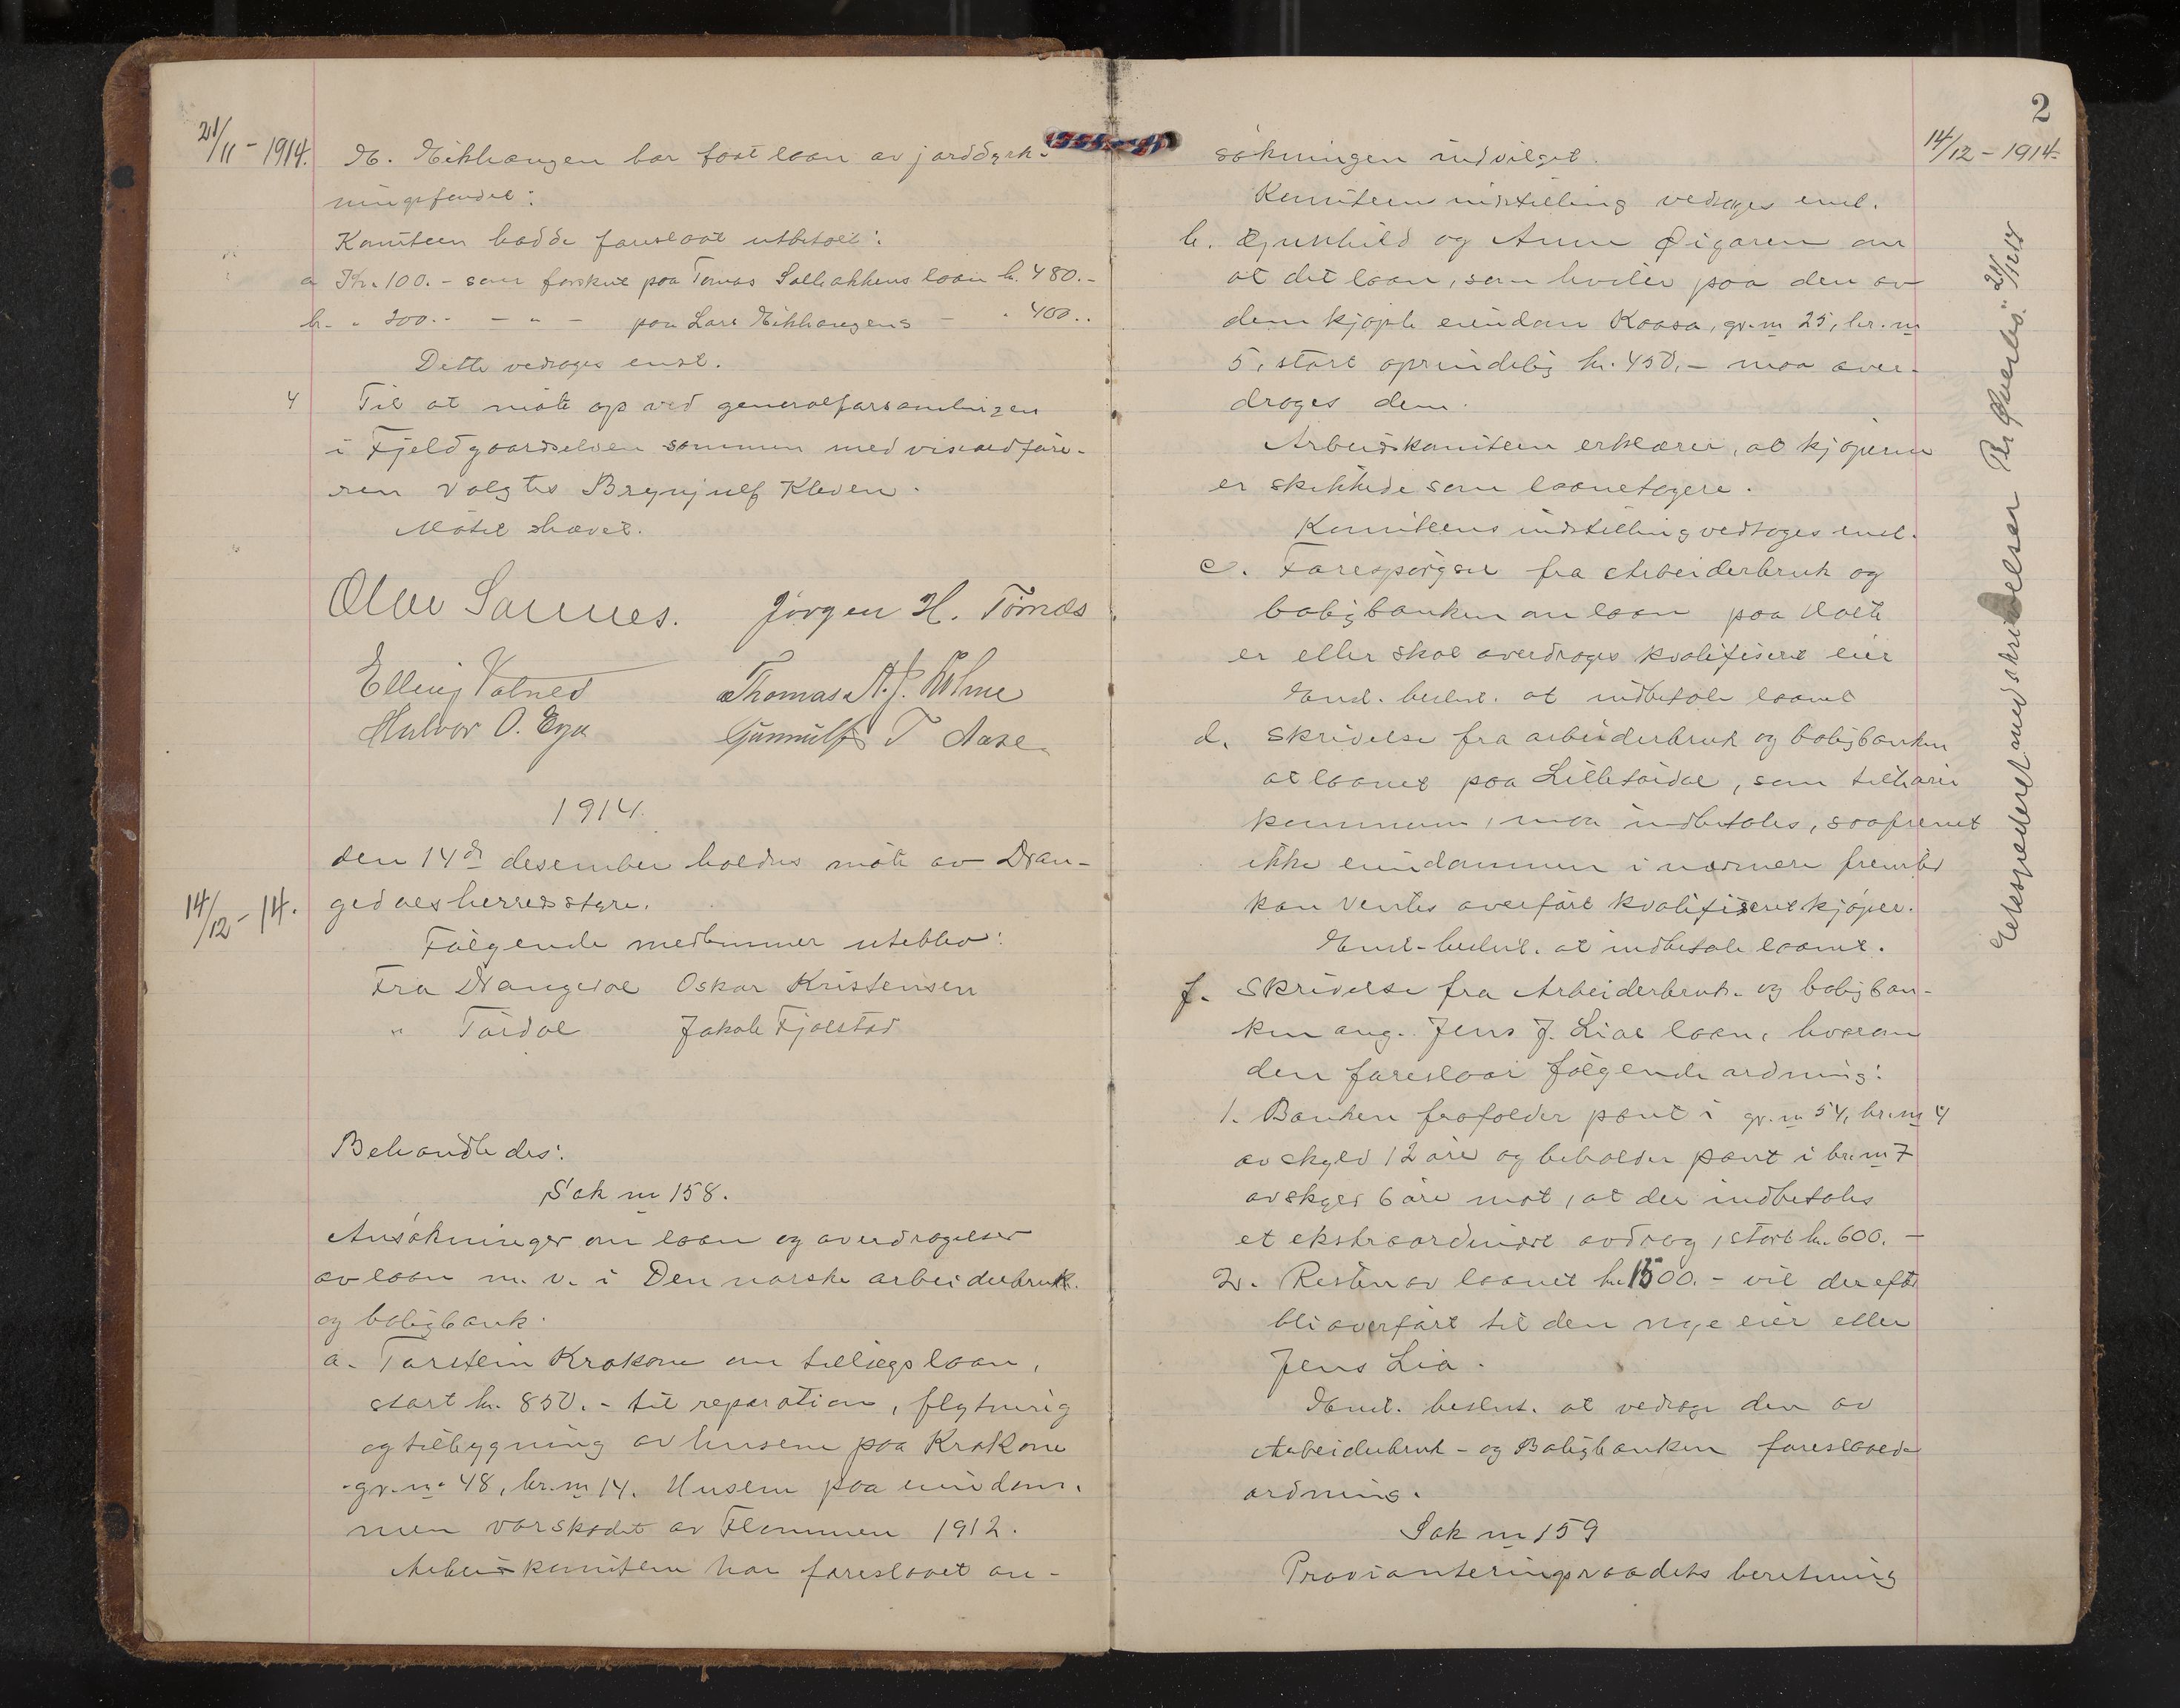 21/11 - 1914.
N. Eikhaugen har faat laan av jorddyrk-
ningsfondet:
Komiteen hadde foreslaat utbetalt:
a Kr. 100.- som forskud paa Tomas Solbakkens laan kr. 480.-
b. " 200.- - " - paa Lars Eikhaugens - " 400..
Dette vedtoges enst.
4 Til at møte op ved generalforsamlingen
i Fjeldgaardselven sammen med viseordføre-
ren valgtes Brynjulf Kleven.
Møtet hævet.
Olav Sannes. Jørgen H. Tørnæs
Elling Valned Thomas A. J. Holme
Halvor O. Ega Gunnulf T Aase
1914.
14/12 - 14.
den 14de desember holdtes møte av Dran-
gedals herredsstyre.
Følgende medlemmer uteblev:
Fra Drangedal Oskar Kristensen
" Tørdal Jakob Fjalstad
Behandledes:
Sak nr 158.
Ansøkninger om laan og overdragelser
av laan m. v. i Den norske arbeiderbruk.
og boligbank.
a. Torstein Krokone om tillægslaan,
stort kr. 850.- til reparation, flytning
og tilbygning av husene paa Krokone
gr. nr 48, br. nr 14. Husene paa eiendom-
men var skadet av Flommen 1912.
Arbeidskomiteen har foreslaaet an-
2
14/12 - 1914.
søkningen indvilget.
Komiteens indstilling vedtoges enst.
b. Gunhild og Anne Øigaren om
at det laan, som hviler paa den av
dem kjøpte eiendom Kaasa, gr. nr 25, br. nr
5, stort oprindelig kr. 450,- maa over-
drages dem.
Arbeidskomiteen erklærer, at kjøperne
er skikkede som laanetagere.
Komiteens indstilling vedtoges enst.
c. Forespørgsel fra Arbeiderbruk og
boligbanken om laan paa
er eller skal overdrages kvalifisert eier
Enst. beslut. at indbetale laanet
d. Skrivelse fra arbeiderbruk og boligbanken
at laanet paa Lilletørdal, som tilhører
kommunen, maa indbetales, saafremt
ikke eiendommen i nærmere fremtid
kan ventes overført kvalifiseret kjøper.
Enst. beslut. at indbetale laanet.
f. Skrivelse fra Arbeiderbruk- og boligban-
ken ang. Jens J. Lias laan, hvorom
den foreslaar følgende ordning:
1. Banken frafalder pant i gr. nr 54, br. nr 4
av skyld 12 øre og beholder pant i br. nr 7
av skyld 6 øre mot, at der indbetales
et ekstraordinært avdrag, stort kr. 600.-
2. Resten av laanet kr. 1500.- vil derefter
bli overført til den nye eier eller
Jens Lia.
Enst. beslut. at vedtage den av
Arbeiderbruk- og Boligbanken foreslaaede
ordning.
Sak nr 159
Provianteringsraadets beretning
Ekspederet med skrivelser Per Øverbø. 21/12 14